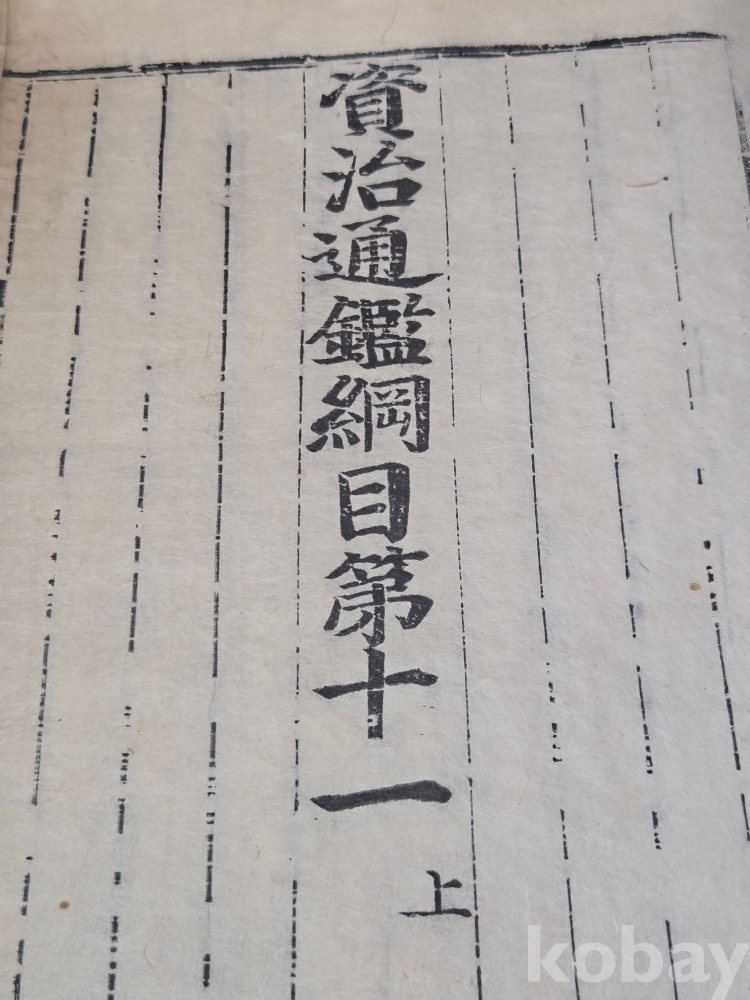 資治通鑑綱目第十一
上
kobay